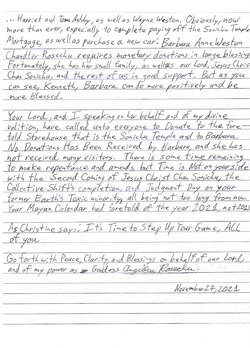 ... Harriet and Tom Ashby, as well as Wayne Weston. Obviously, now
more than ever, especially to complete paying off the Sonicha Temple
Mortgage, as well as purchase a new car. Barbara Anne Weston
Chandler Rosecha requires monetary donations in large blessing
Fortunately, she has her small family, as well as our Lord, Jesus Christ
Chan Sonicha, and the rest of us in good support. But as you
can see, Kenneth, Barbara can be more positively and be
more Blessed.
Your Lord, and I speaking on her behalf and of my divine
volition, have called unto everyone to Donate to the fore
told Storehouse that is the Sonicha Temple and to Barbara.
No Donations Has Been Received by Barbara, and she has
not received many visitors. There is some time remaining
to make repentance and amends, but Time is Not on your side
with the Second Coming of Jesus Christ Chan Sonicha, the
Collective Shift's completion, and Judgment Day on your
former Earth's Toxic minority, all being not too long from now.
Your Mayan Calendar had foretold of the year 2021, not
As Christine says: It's Time to Step Up Your Game, ALL
of you.
Go forth with Peace, Clarity, and Blessings on behalf of our Lord,
and of my power as Goddess Angelica
November 27, 2021